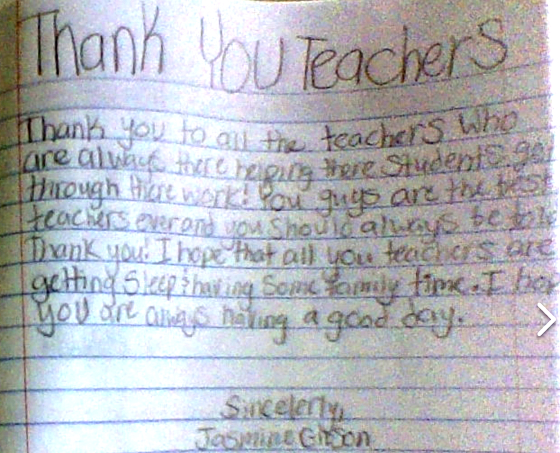 Thank You Teachers
Thank you to all the teachers who
are always there helping there students get
through there work! You guys are the best
teachers ever and you should always be told
Thank you! I hope that all you teachers are
getting sleep & having some family time. I
you are always having a good day.
Sincelerty,
Jasmine Gibson